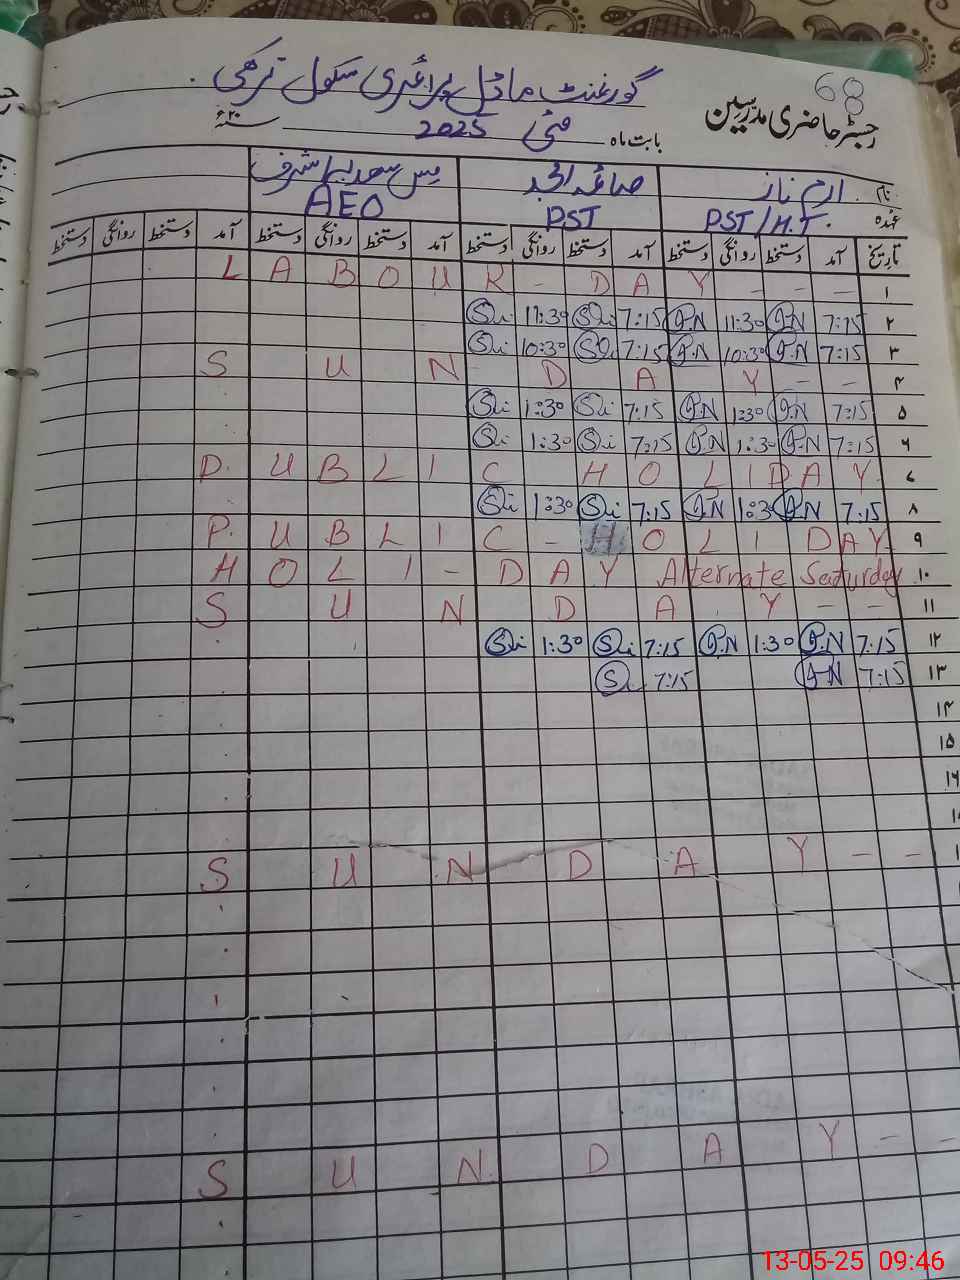 68
گورنمنٹ ماڈل پرائمری سکول ترھی
رجسٹر حاضری مدرسین
بابت ماہ مئی 2025 ۲۰ء سنہ
نام ارم ناز صائمہ امجد مس سعدیہ اشرف
عہدہ PST/H.T. PST AEO
تاریخ آمد دستخط روانگی دستخط آمد دستخط روانگی دستخط آمد دستخط روانگی دستخط آمد دستخط روانگی دستخط
۱ L A B O U R - D A Y - - -
۲ 7:15 I.N 11:30 I.N 7:15 11:30
۳ 7:15 I.N 10:30 I.N 7:15 10:30
۴ S U N D A Y - -
۵ 7:15 I.N 1:30 I.N 7:15 1:30
۶ 7:15 I.N 1:30 I.N 7:15 1:30
۷ P. U B L I C H O L I D A Y
۸ 7:15 I.N 1:30 I.N 7:15 1:30
۹ P. U B L I C - H O L I D A Y
۱۰ H O L I - D A Y Alternate Saturday
۱۱ S U N D A Y - -
۱۲ 7:15 I.N 1:30 I.N 7:15 1:30
۱۳ 7:15 I.N 7:15
۱۴
۱۵
۱۶
S U N D A Y - -
S U N D A Y - -
13-05-25 09:46